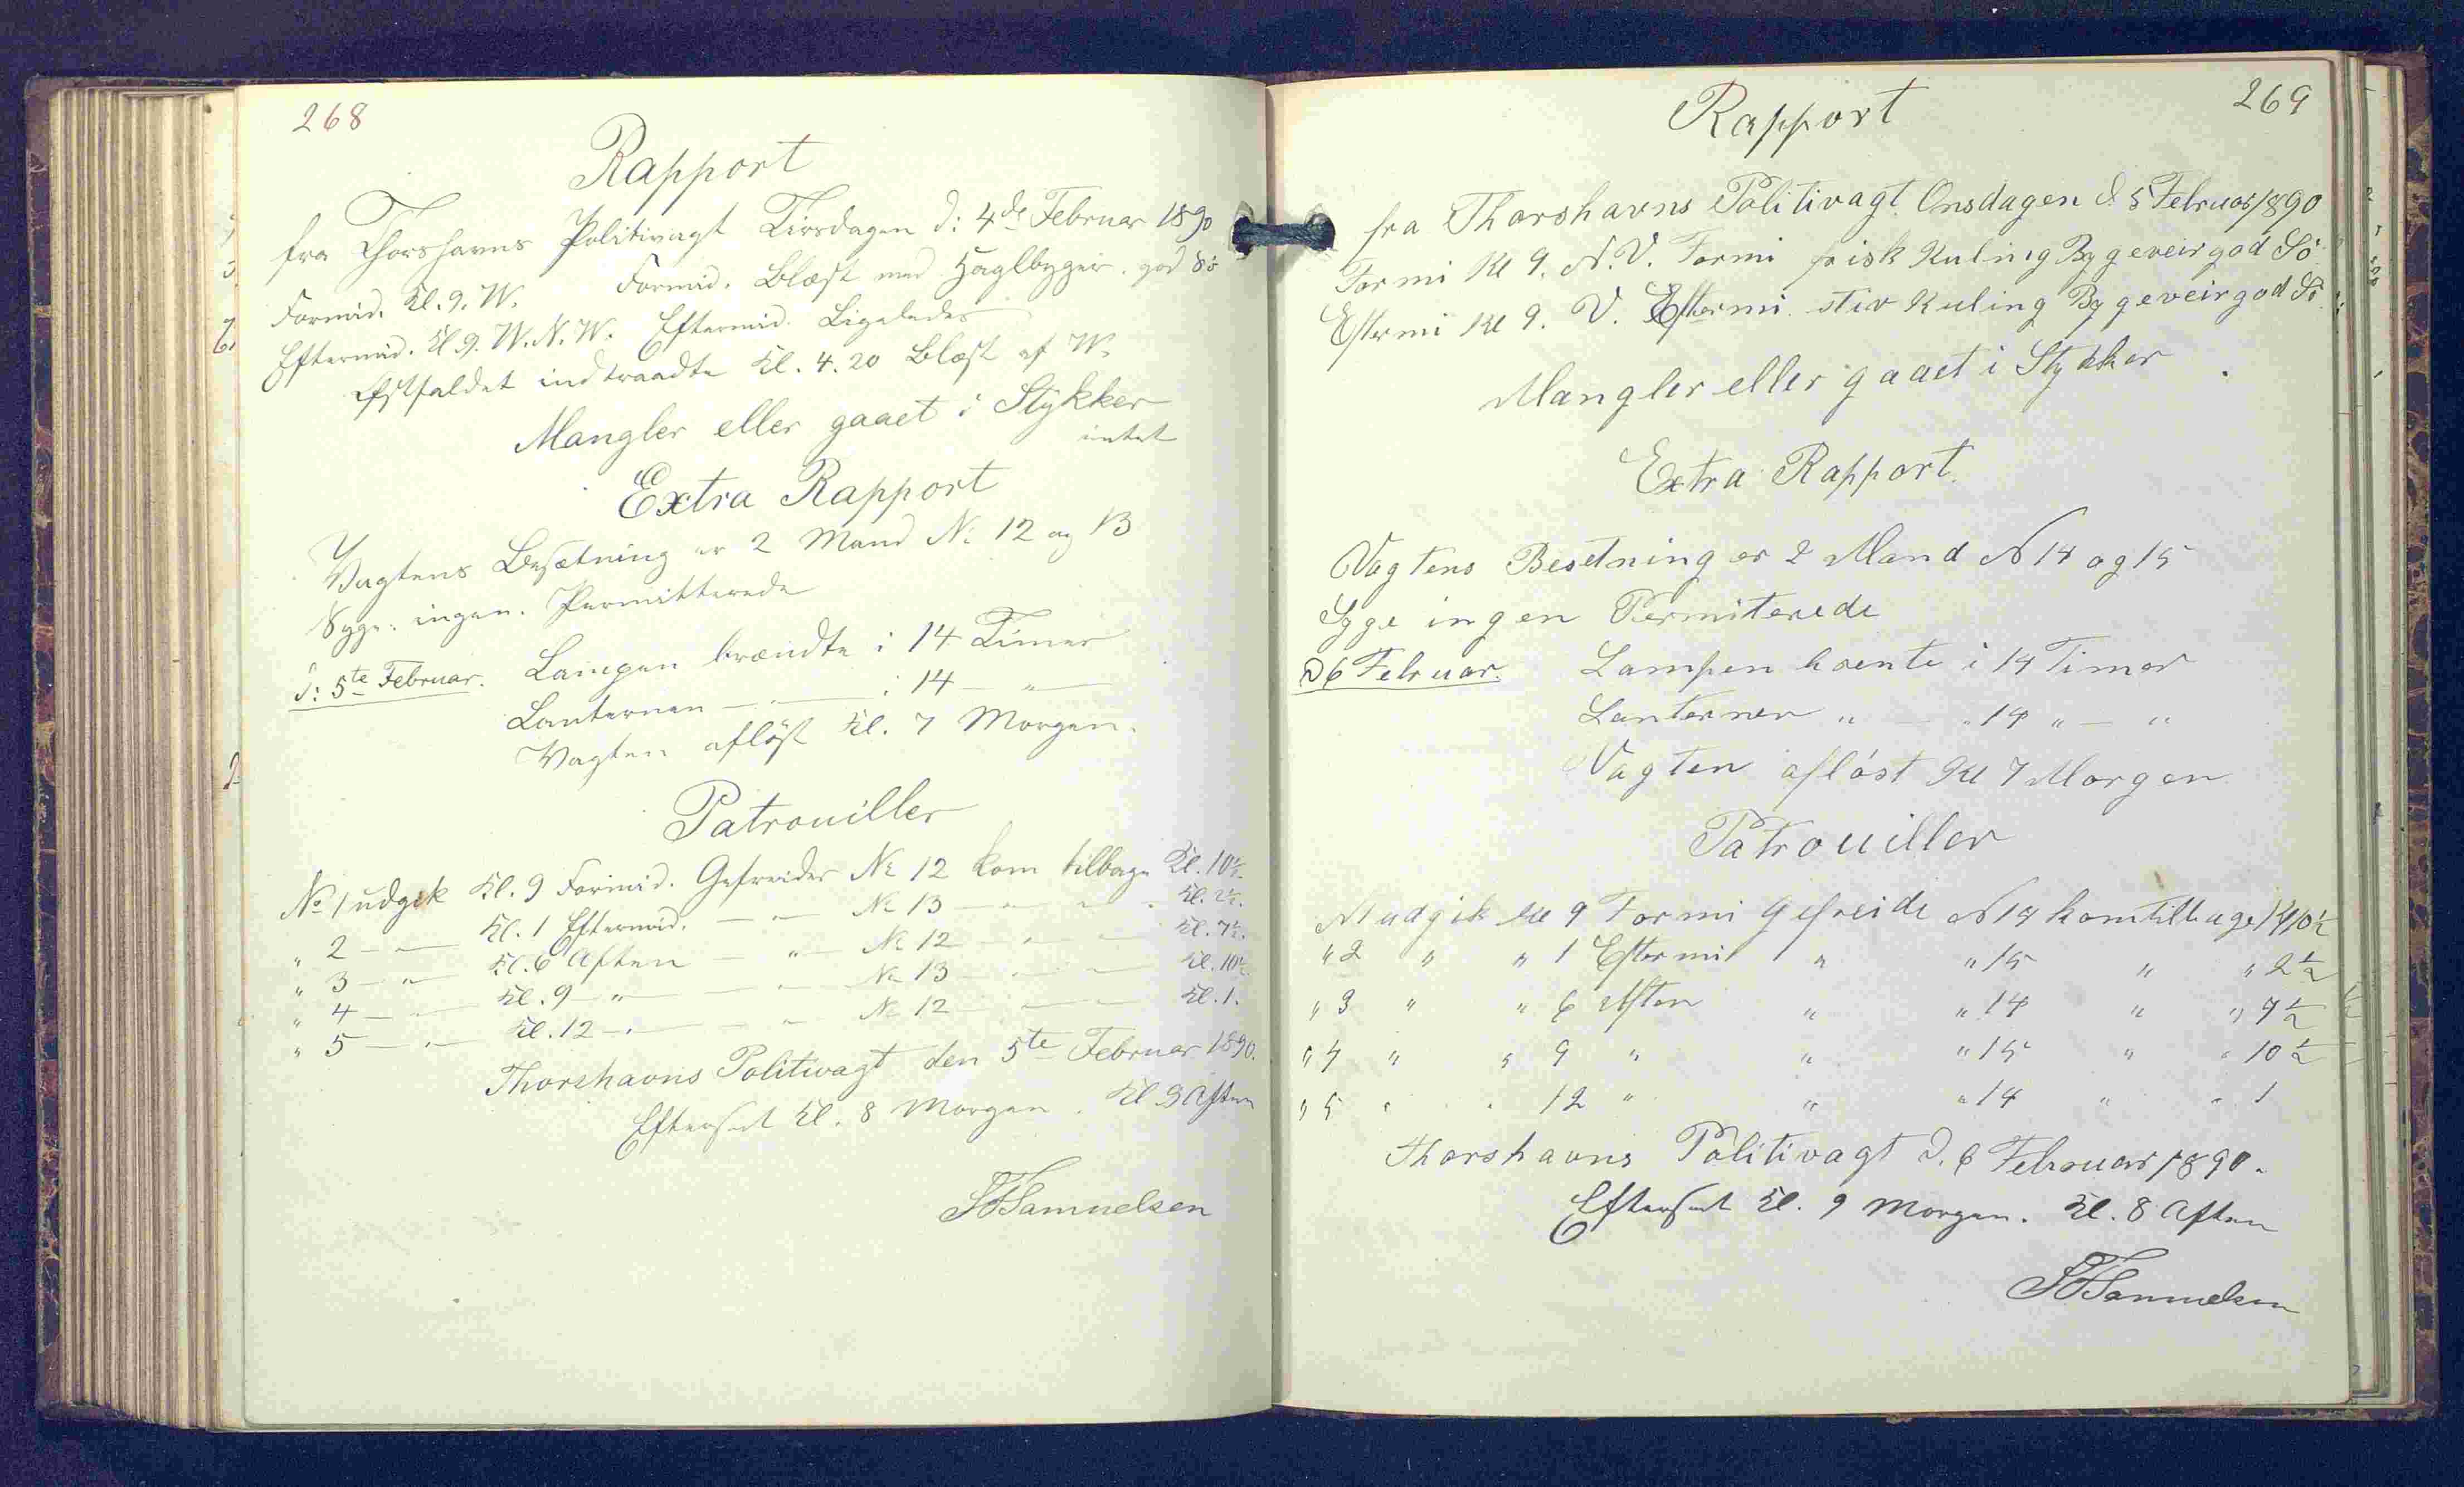 268
Rapport
fra Thorshavns Politivagt Tirsdagen d: 4de Februar 1890
Formid. Kl. 9. W. Formid. Blæst med Haglbyger. god Sö
Eftermid. Kl. 9. W.N.W. Eftermid. Ligeledes
Østfaldet indtraadte Kl. 4.20 Blæst af W.
Mangler eller gaaet i Stykker
intet
Extra Rapport
Vagtens Besætning er 2 Mand No 12 og 13
Syge: ingen. Permitterede
d: 5te Februar. Lampen brændte i 14 Timer
Lanternen — " — i 14 — " —
Vagten aflöst Kl. 7 Morgen.
Patrouiller
No 1 udgik Kl. 9 Formid. Gefreider No 12 kom tilbage Kl. 10½.
" 2 — " — Kl. 1 Eftermid. — " — No 13 — " — " — Kl. 2½.
" 3 — " — Kl. 6 Aften — " — No 12 — " — Kl. 7½.
" 4 — " — Kl. 9 — " — — " — No 13 — " — Kl. 10½.
" 5 — " — Kl. 12 — " — — " — No 12 — " — Kl. 1.
Thorshavns Politivagt den 5te Februar 1890.
Efterset Kl. 8 Morgen. Kl 9 Aften
Samuelsen
269
Rapport
fra Thorshavns Politivagt. Onsdagen d. 5 Februar 1890
Formi Kl 9. N.V. Formi frisk Kuling Bygeveir god Sö
Eftermi Kl 9. V. Eftermi stiv Kuling Bygeveir god Sö
Mangler eller gaaet i Stykker
Extra Rapport.
Vagtens Besetning er 2 Mand N 14 og 15
Syge ingen Permiterede
D 6 Februar. Lampen brente i 14 Timer
Lanternen " — " 14 " — "
Vagten aflöst Kl 7 Morgen
Patrouiller
N 1 udgik Kl 9 Formi Gefreide N 14 kom tilbage Kl 10½
" 2 " " 1 Eftermi " " 15 " " 2½
" 3 " " 6 Aften " " 14 " " 7½
" 4 " " 9 " " " 15 " " 10½
" 5 " " 12 " " " 14 " " 1
Thorshavns Politivagt D. 6 Februar 1890.
Efterset Kl. 9 Morgen. Kl. 8 Aften
Samuelsen